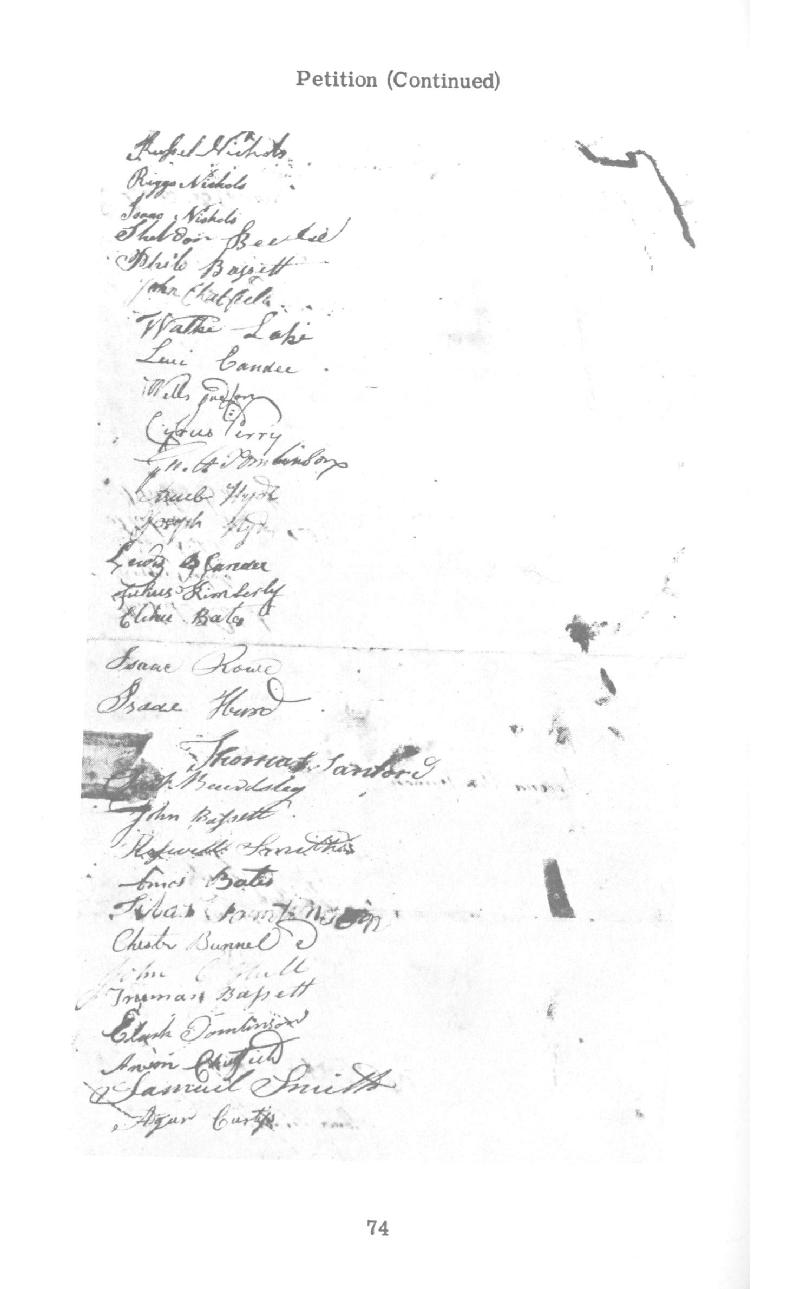 Petition (Continued)
Russel Nichols
Riggs Nichols
Isaac Nichols
Sheldon
Philo Bassett
John Chatfield
Lake
Levi Candee
Wells Judson
Cyrus Perry
Tomlinson
Hyde
Joseph
Lewis Candee
Julius Kimberly
Elihu Bates
Isaac Rowe
Isaac Hurd
Thomas Sanford
Beardsley
John Bassett
Smith
Bates
Chester Bunnel
John
Truman Bassett
Clark Tomlinson
Chatfield
Samuel Smith
Agur Curtis
74